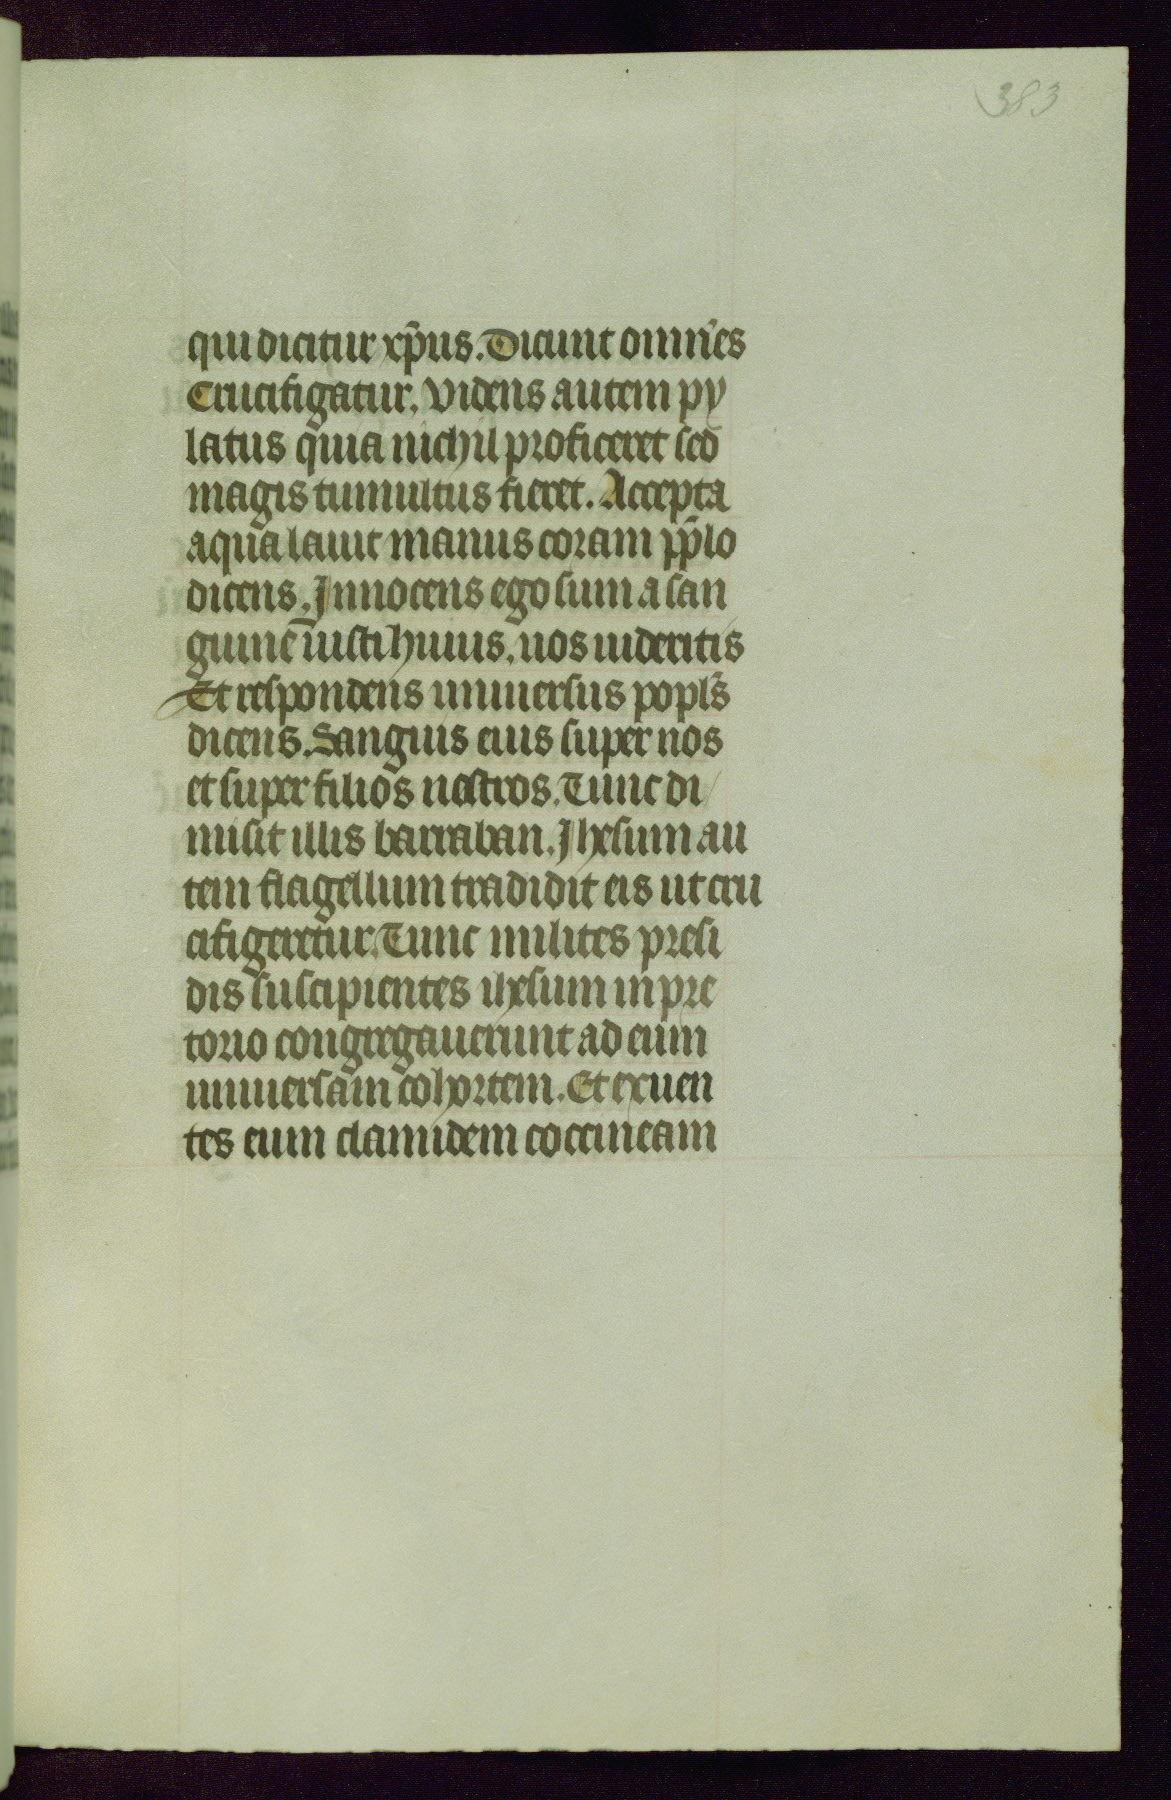 383
qui dicitur xp̄us. Dicunt omnes
Crucifigatur. Videns autem py
latus quia nichil proficeret sed
magis tumultus fieret. Accepta
aqua lauit manus coram pp̄lo
dicens. Innocens ego sum a san
guine iusti huius. uos uideritis
Et respondens uniuersus popl's
dicens. Sanguis eius super nos
et super filios nostros. Tunc di
misit illis barraban. Ihesum au
tem flagellum tradidit eis ut cru
cifigeretur. Tunc milites presi
dis suscipientes ihesum in pre
torio congregauerunt ad eum
uniuersam cohortem. Et exuen
tes eum clamidem coccineam